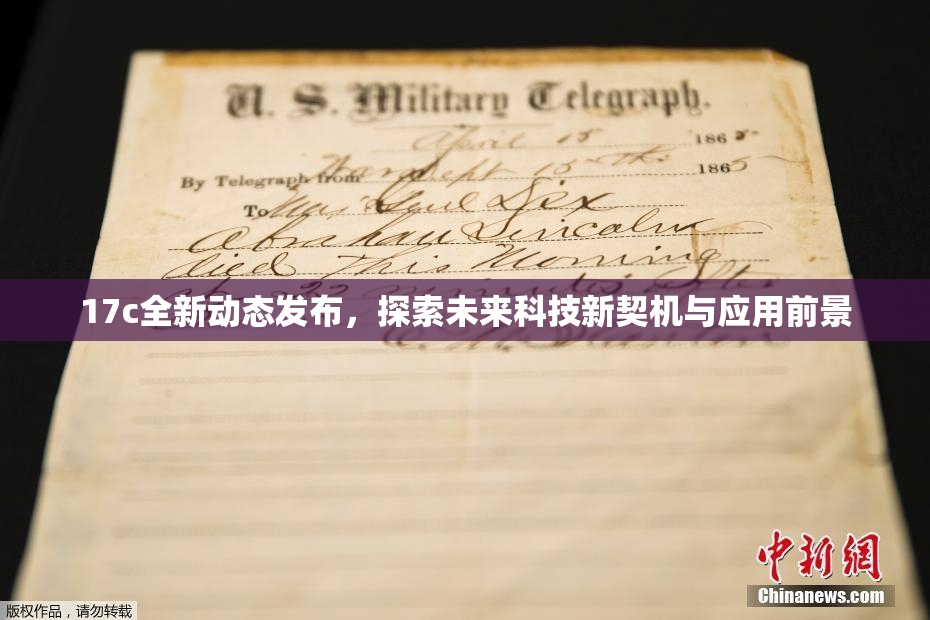 U. S. Military Telegraph.
April 15 1865
By Telegraph from War Dept 15th 1865
To Maj Genl Dix
Abraham Lincoln
died This Morning
22 minutes after
17c全新动态发布，探索未来科技新契机与应用前景
E. M. Stanton
中新网
Chinanews.com
版权作品，请勿转载